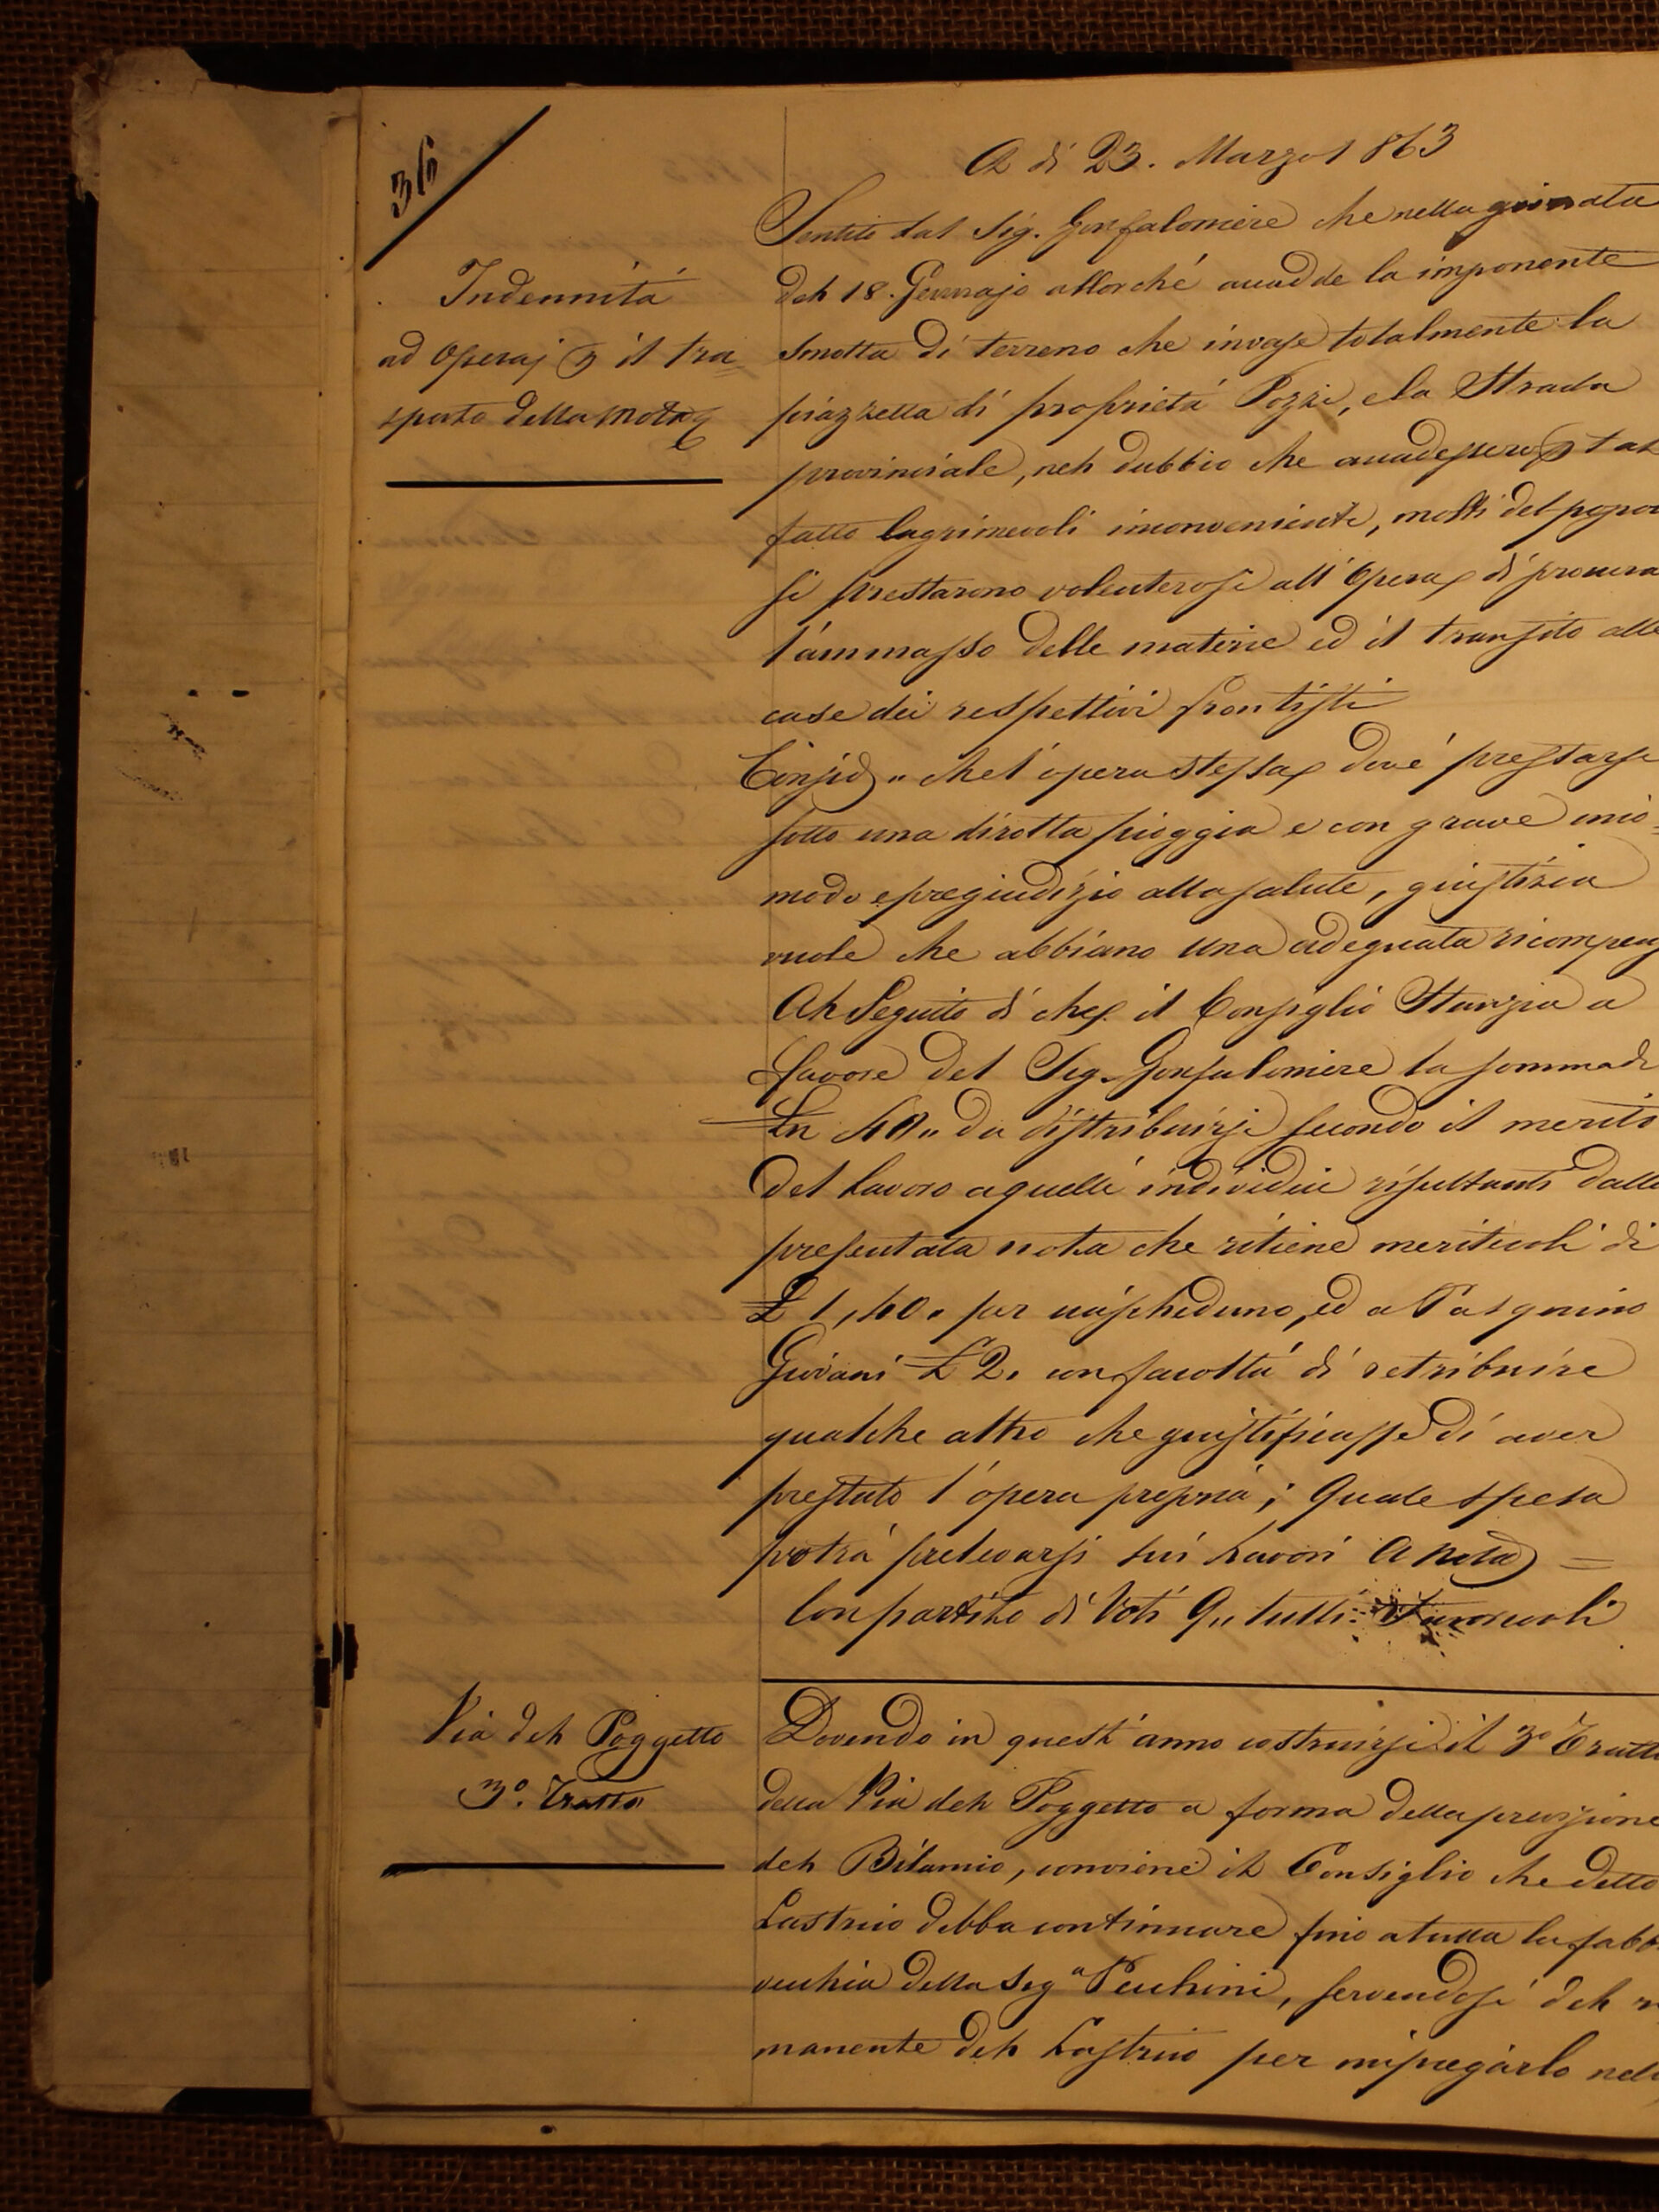 36
A dì 23. Marzo 1863
Indennità
ad Operaj p il tra=
sporto della mota
Sentito dal Sig. Gonfaloniere che nella giornata
del 18. Gennajo allorché accadde la imponente
smotta di terreno che invase totalmente la
piazzetta di proprietà Pozzi, e la Strada
provinciale, nel dubbio che accadessero p tal
fatto lagrimevoli inconvenienti, molti del popolo
si prestarono volenterosi all'Opera di procura
l'ammasso delle materie ed il transito alle
case dei respettivi frontisti
Consid. che l'opera stessa dové prestarsi
sotto una dirotta pioggia e con grave inco=
modo e pregiudizio alla salute, giustizia
vuole che abbiano una adeguata ricompensa
Al Seguito di che il Consiglio Stanzia a
favore del Sig. Gonfaloniere la somma di
Ln 40 " da distribuirsi secondo il merito
del lavoro a quelli individui risultanti dalla
presentata nota che ritiene meritevoli di
£ 1,40 " per ciascheduno, ed a Pasquino
Giovani £ 2. con facoltà di retribuire
qualche altro che giustificasse di aver
prestato l'opera propria; Quale spesa
potrà prelevarsi sui Lavori a Nota =
Con partito di Voti 9,, tutti Favorevoli
Via del Poggetto
3º. Tratto
Dovendo in quest'anno costruirsi il 3º Tratto
della Via del Poggetto a forma della previsione
del Bilancio, conviene il Consiglio che detto
Lastrico debba continuare fino a tutta la fabb
vecchia della Sigª Pecchini, servendosi del ri
manente del Lastrico per impiegarlo nella